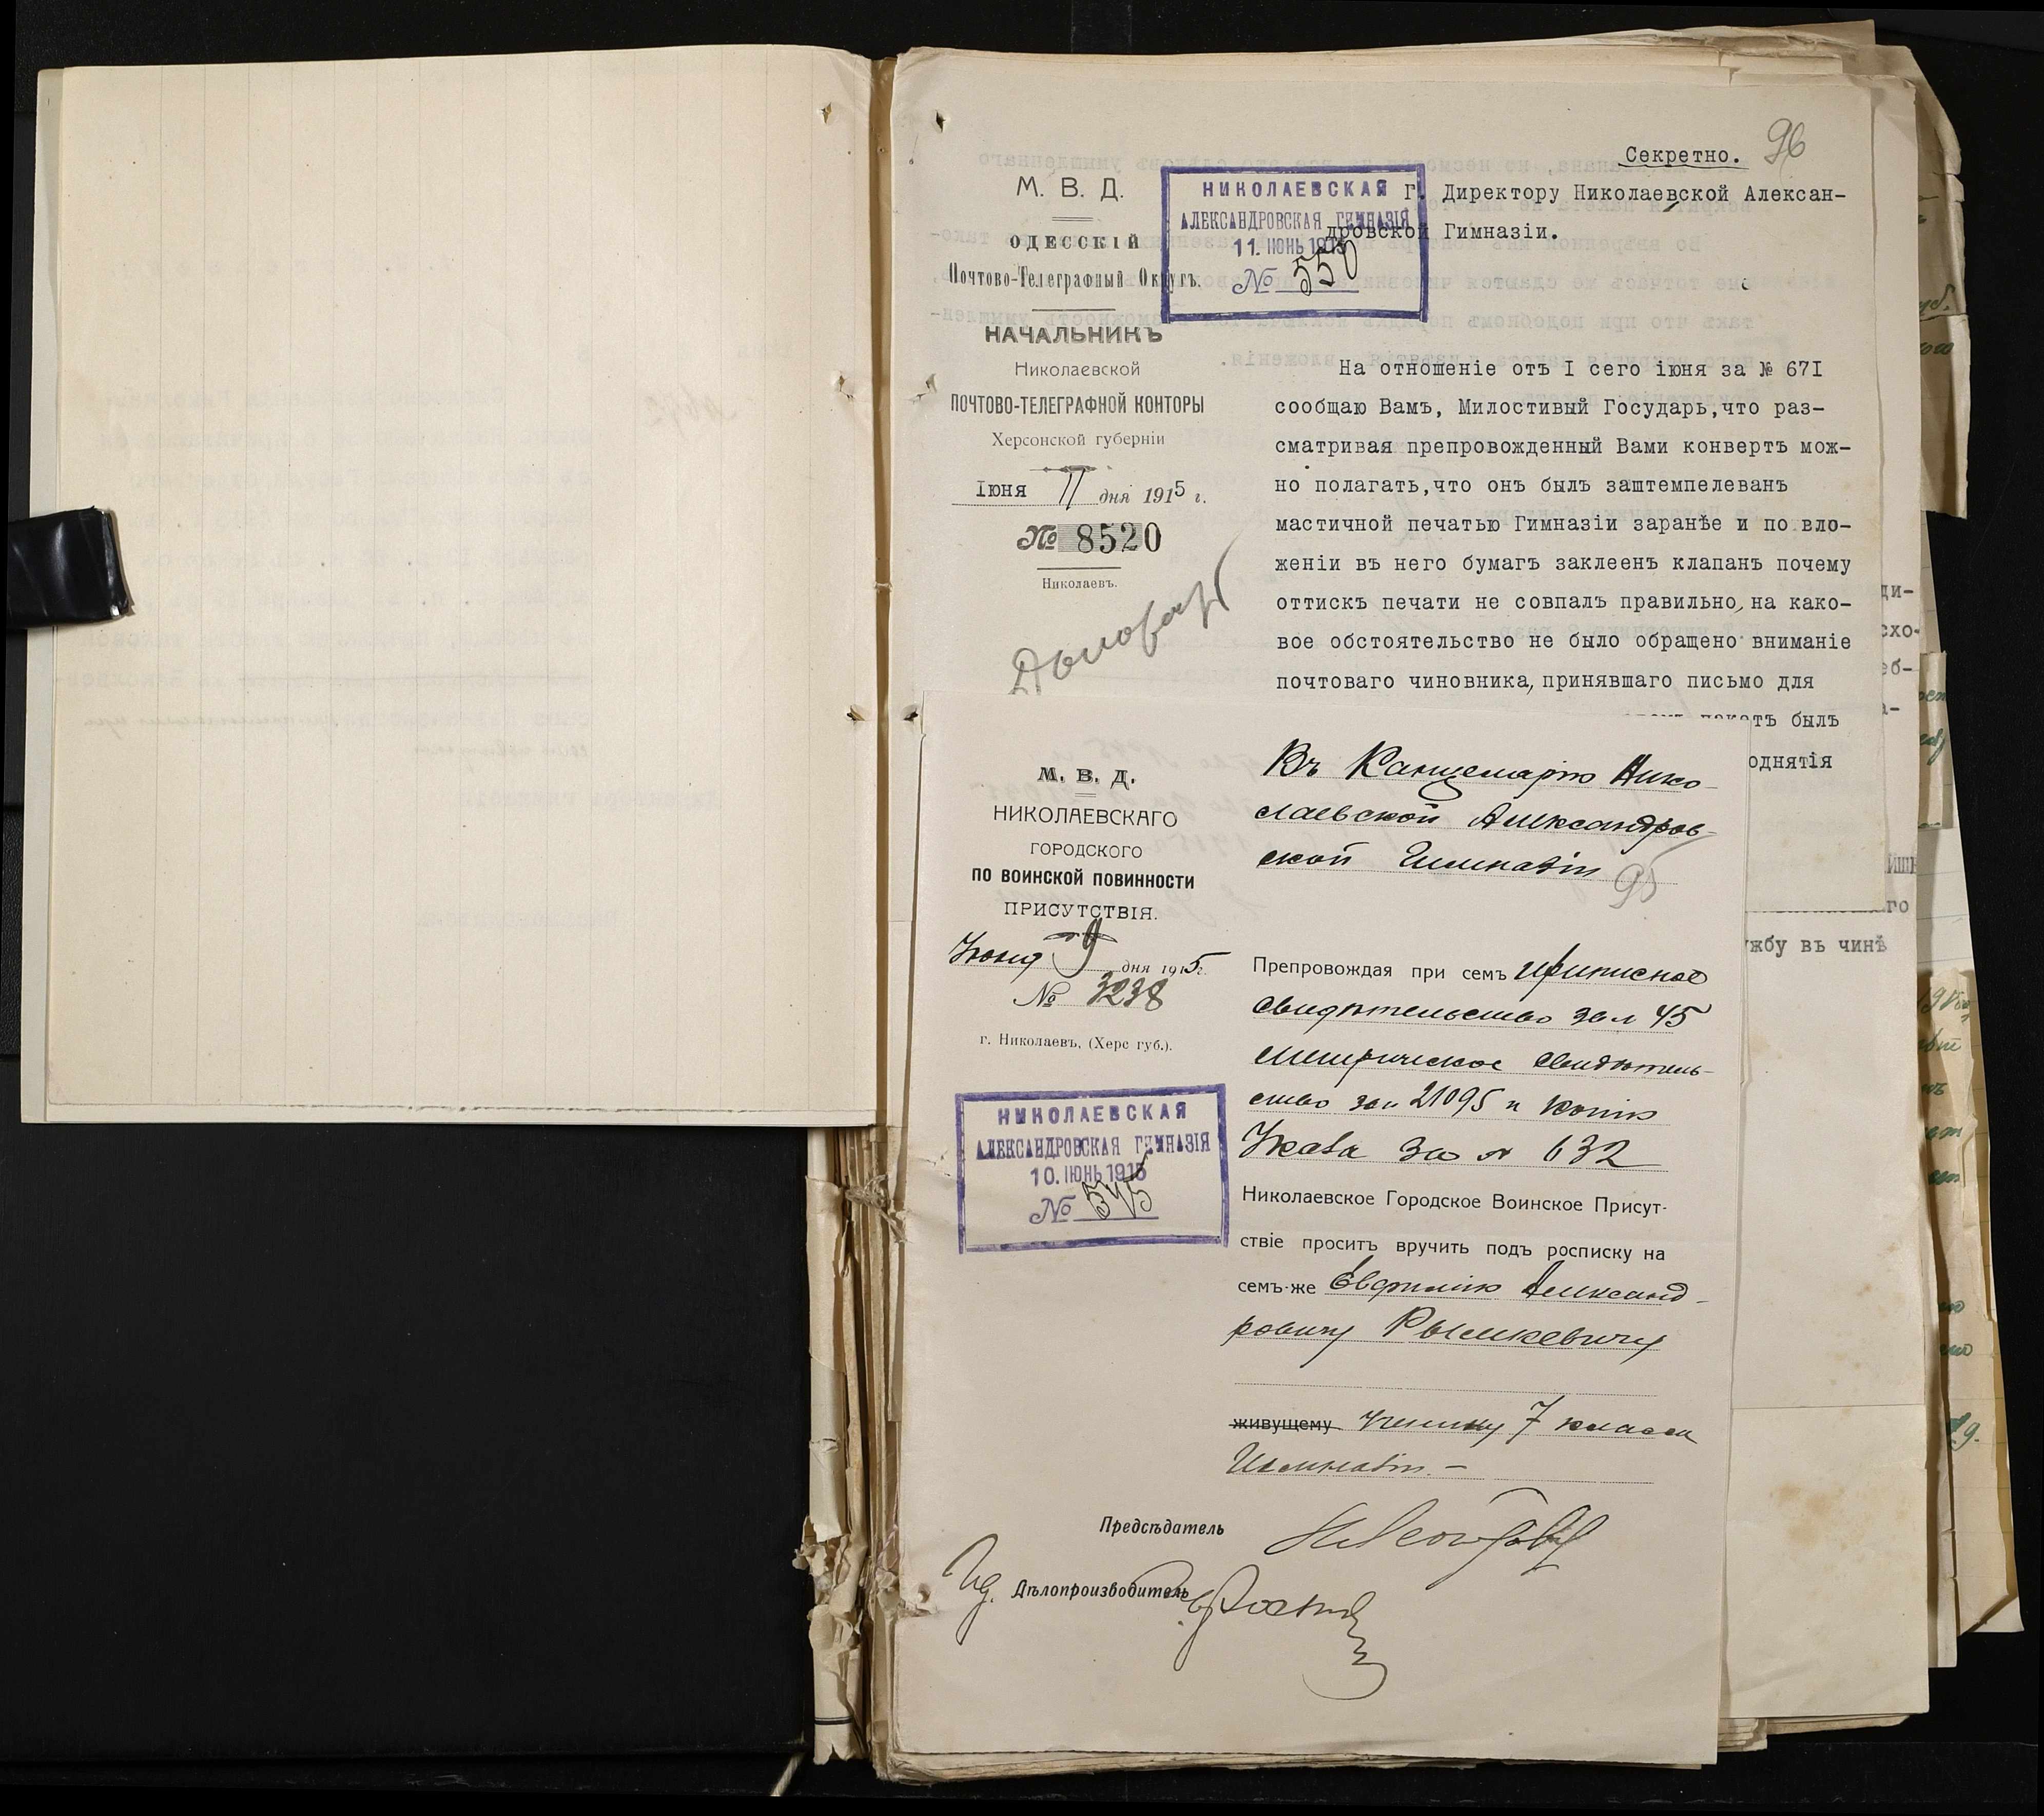 96
Секретно.
Г. Директору Николаевской Алексан-
дровской Гимназіи.
М. В. Д.
ОДЕССКІЙ
Почтово-Телеграфный Округъ.
НАЧАЛЬНИКЪ
Николаевской
ПОЧТОВО-ТЕЛЕГРАФНОЙ КОНТОРЫ
Херсонской губерніи
Іюня 11 дня 1915 г.
№ 8520
Николаевъ.
НИКОЛАЕВСКАЯ
АЛЕКСАНДРОВСКАЯ ГИМНАЗІЯ
11. ІЮНЬ 1915
№ 550
На отношеніе отъ I сего іюня за № 67I
сообщаю Вамъ, Милостивый Государь,что раз-
сматривая препровожденный Вами конвертъ мож-
но полагать,что онъ былъ заштемпелеванъ
мастичной печатью Гимназіи заранѣе и по вло-
женіи въ него бумагъ заклеенъ клапанъ почему
оттискъ печати не совпалъ правильно, на како-
вое обстоятельство не было обращено вниманіе
почтоваго чиновника, принявшаго письмо для
пакетъ былъ
однятія
М. В. Д.
НИКОЛАЕВСКАГО
ГОРОДСКОГО
ПО ВОИНСКОЙ ПОВИННОСТИ
ПРИСУТСТВІЯ.
Іюня 9 дня 1915 г.
№ 3238
г. Николаевъ, (Херс губ.).
НИКОЛАЕВСКАЯ
АЛЕКСАНДРОВСКАЯ ГИМНАЗІЯ
10. ІЮНЬ 1915
№ 545
Въ Канцелярію Нико-
лаевской Александров-
ской Гимназіи
95
Препровождая при семъ приписное
свидѣтельство за № 45
метрическое свидѣтель-
ство за № 21095 и копію
Указа за № 632
Николаевское Городское Воинское Присут-
ствіе проситъ вручить подъ росписку на
семъ-же Евфимію Александ-
ровичу Рымкевичу
живущему ученику 7 класса
Гимназіи. —
Предсѣдатель
Ид. Дѣлопроизводитель
ди-
схо-
еб-
а-
го
ужбу въ чинѣ